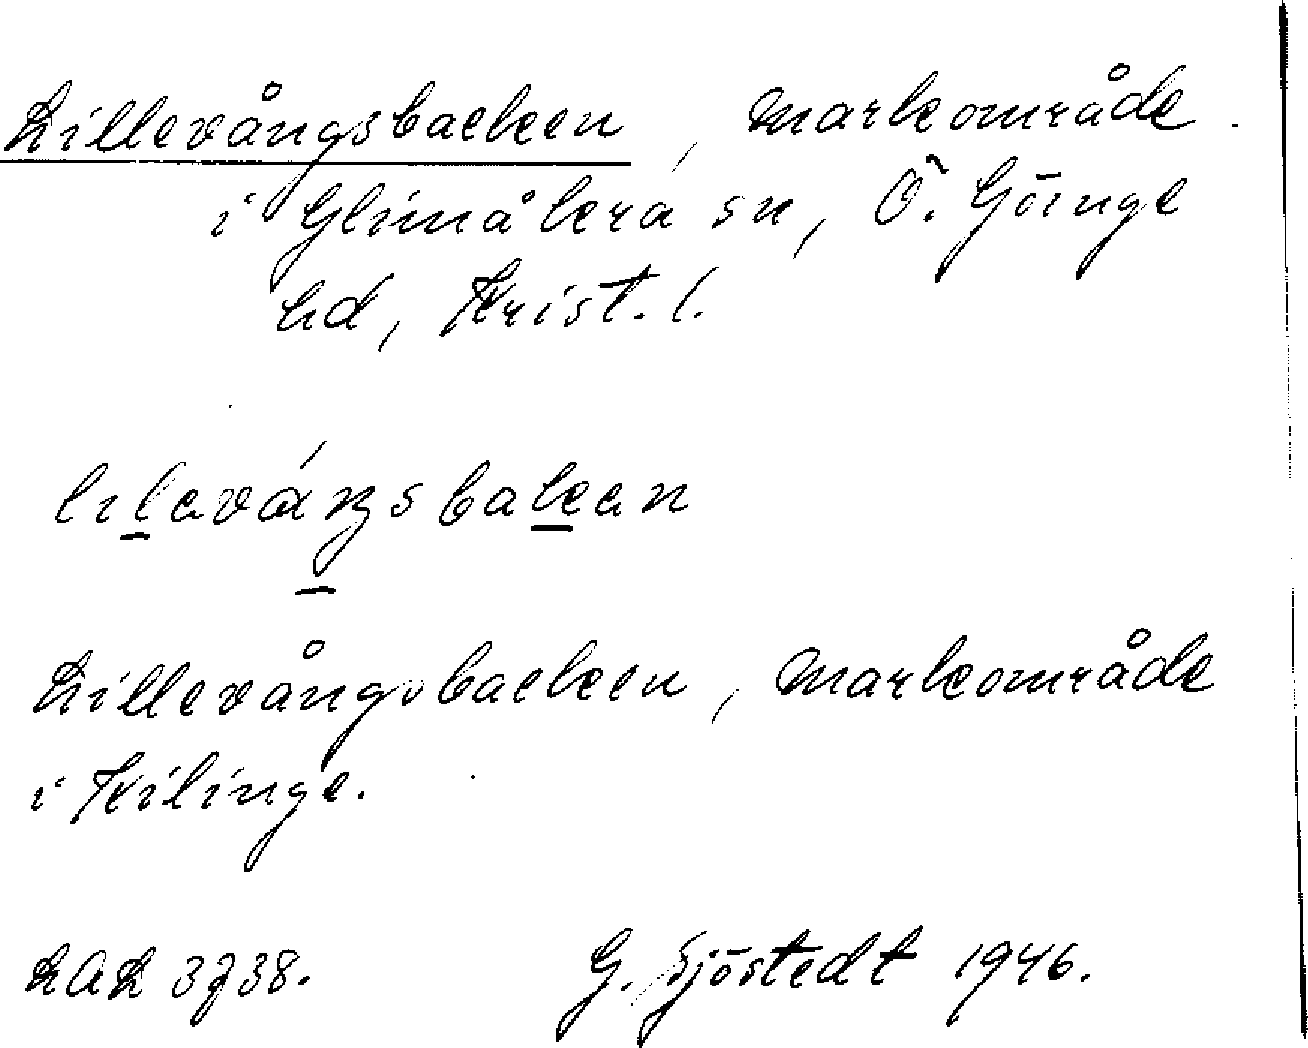 Lillevångsbacken, markområde
i Glimåkra sn, Ö. Göinge
hd, Krist. l.
lilavåŋsbakan
Lillevångsbacken, markområde
i Kilinge.
LAL 3738. G. Sjöstedt 1946.